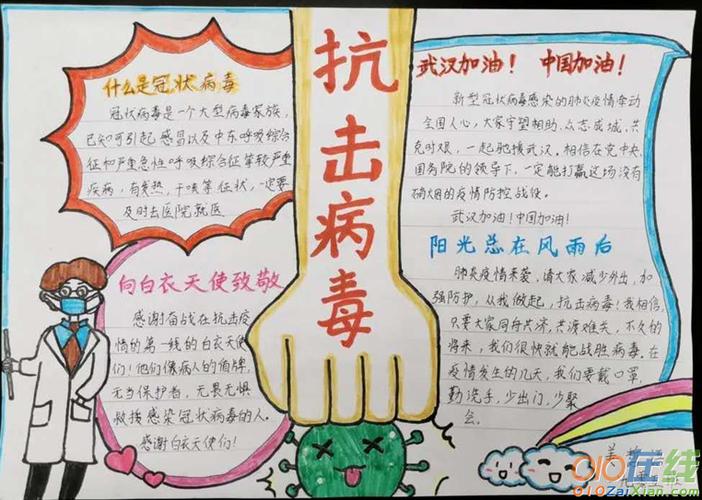 什么是冠状病毒
冠状病毒是一个大型病毒家族,
已知可引起感冒以及中东呼吸综合
征和严重急性呼吸综合征等较严重
疾病,有发热,干咳等症状,一定要
及时去医院就医
向白衣天使致敬
感谢奋战在抗击疫
情的第一线的白衣天使
们!他们像病人的盾牌,
无当保护者,无畏无惧
救援感染冠状病毒的人。
感谢白衣天使们!
抗击病毒
武汉加油! 中国加油!
新型冠状病毒感染的肺炎疫情牵动
全国人心,大家守望相助、众志成城、共
克时艰,一起驰援武汉。相信在党中央
国务院的领导下,一定能打赢这场没有
硝烟的疫情防控战役。
武汉加油!中国加油!
阳光总在风雨后
肺炎疫情来袭,请大家减少外出,加
强防护,从我做起,抗击病毒!我相信,
只要大家同舟共济,共渡难关,不久的
将来,我们很快就能战胜病毒。在
疫情发生的几天,我们要戴口罩,
勤洗手,少出门,少聚
会。
010在线
010ZaiXian.com